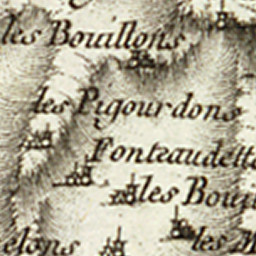 les Bouillons
les Pigourdons
Fonteaudette
les Boui
elons
les M